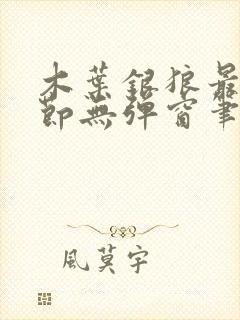 木葉銀狼最
節無彈窗筆
風莫宇